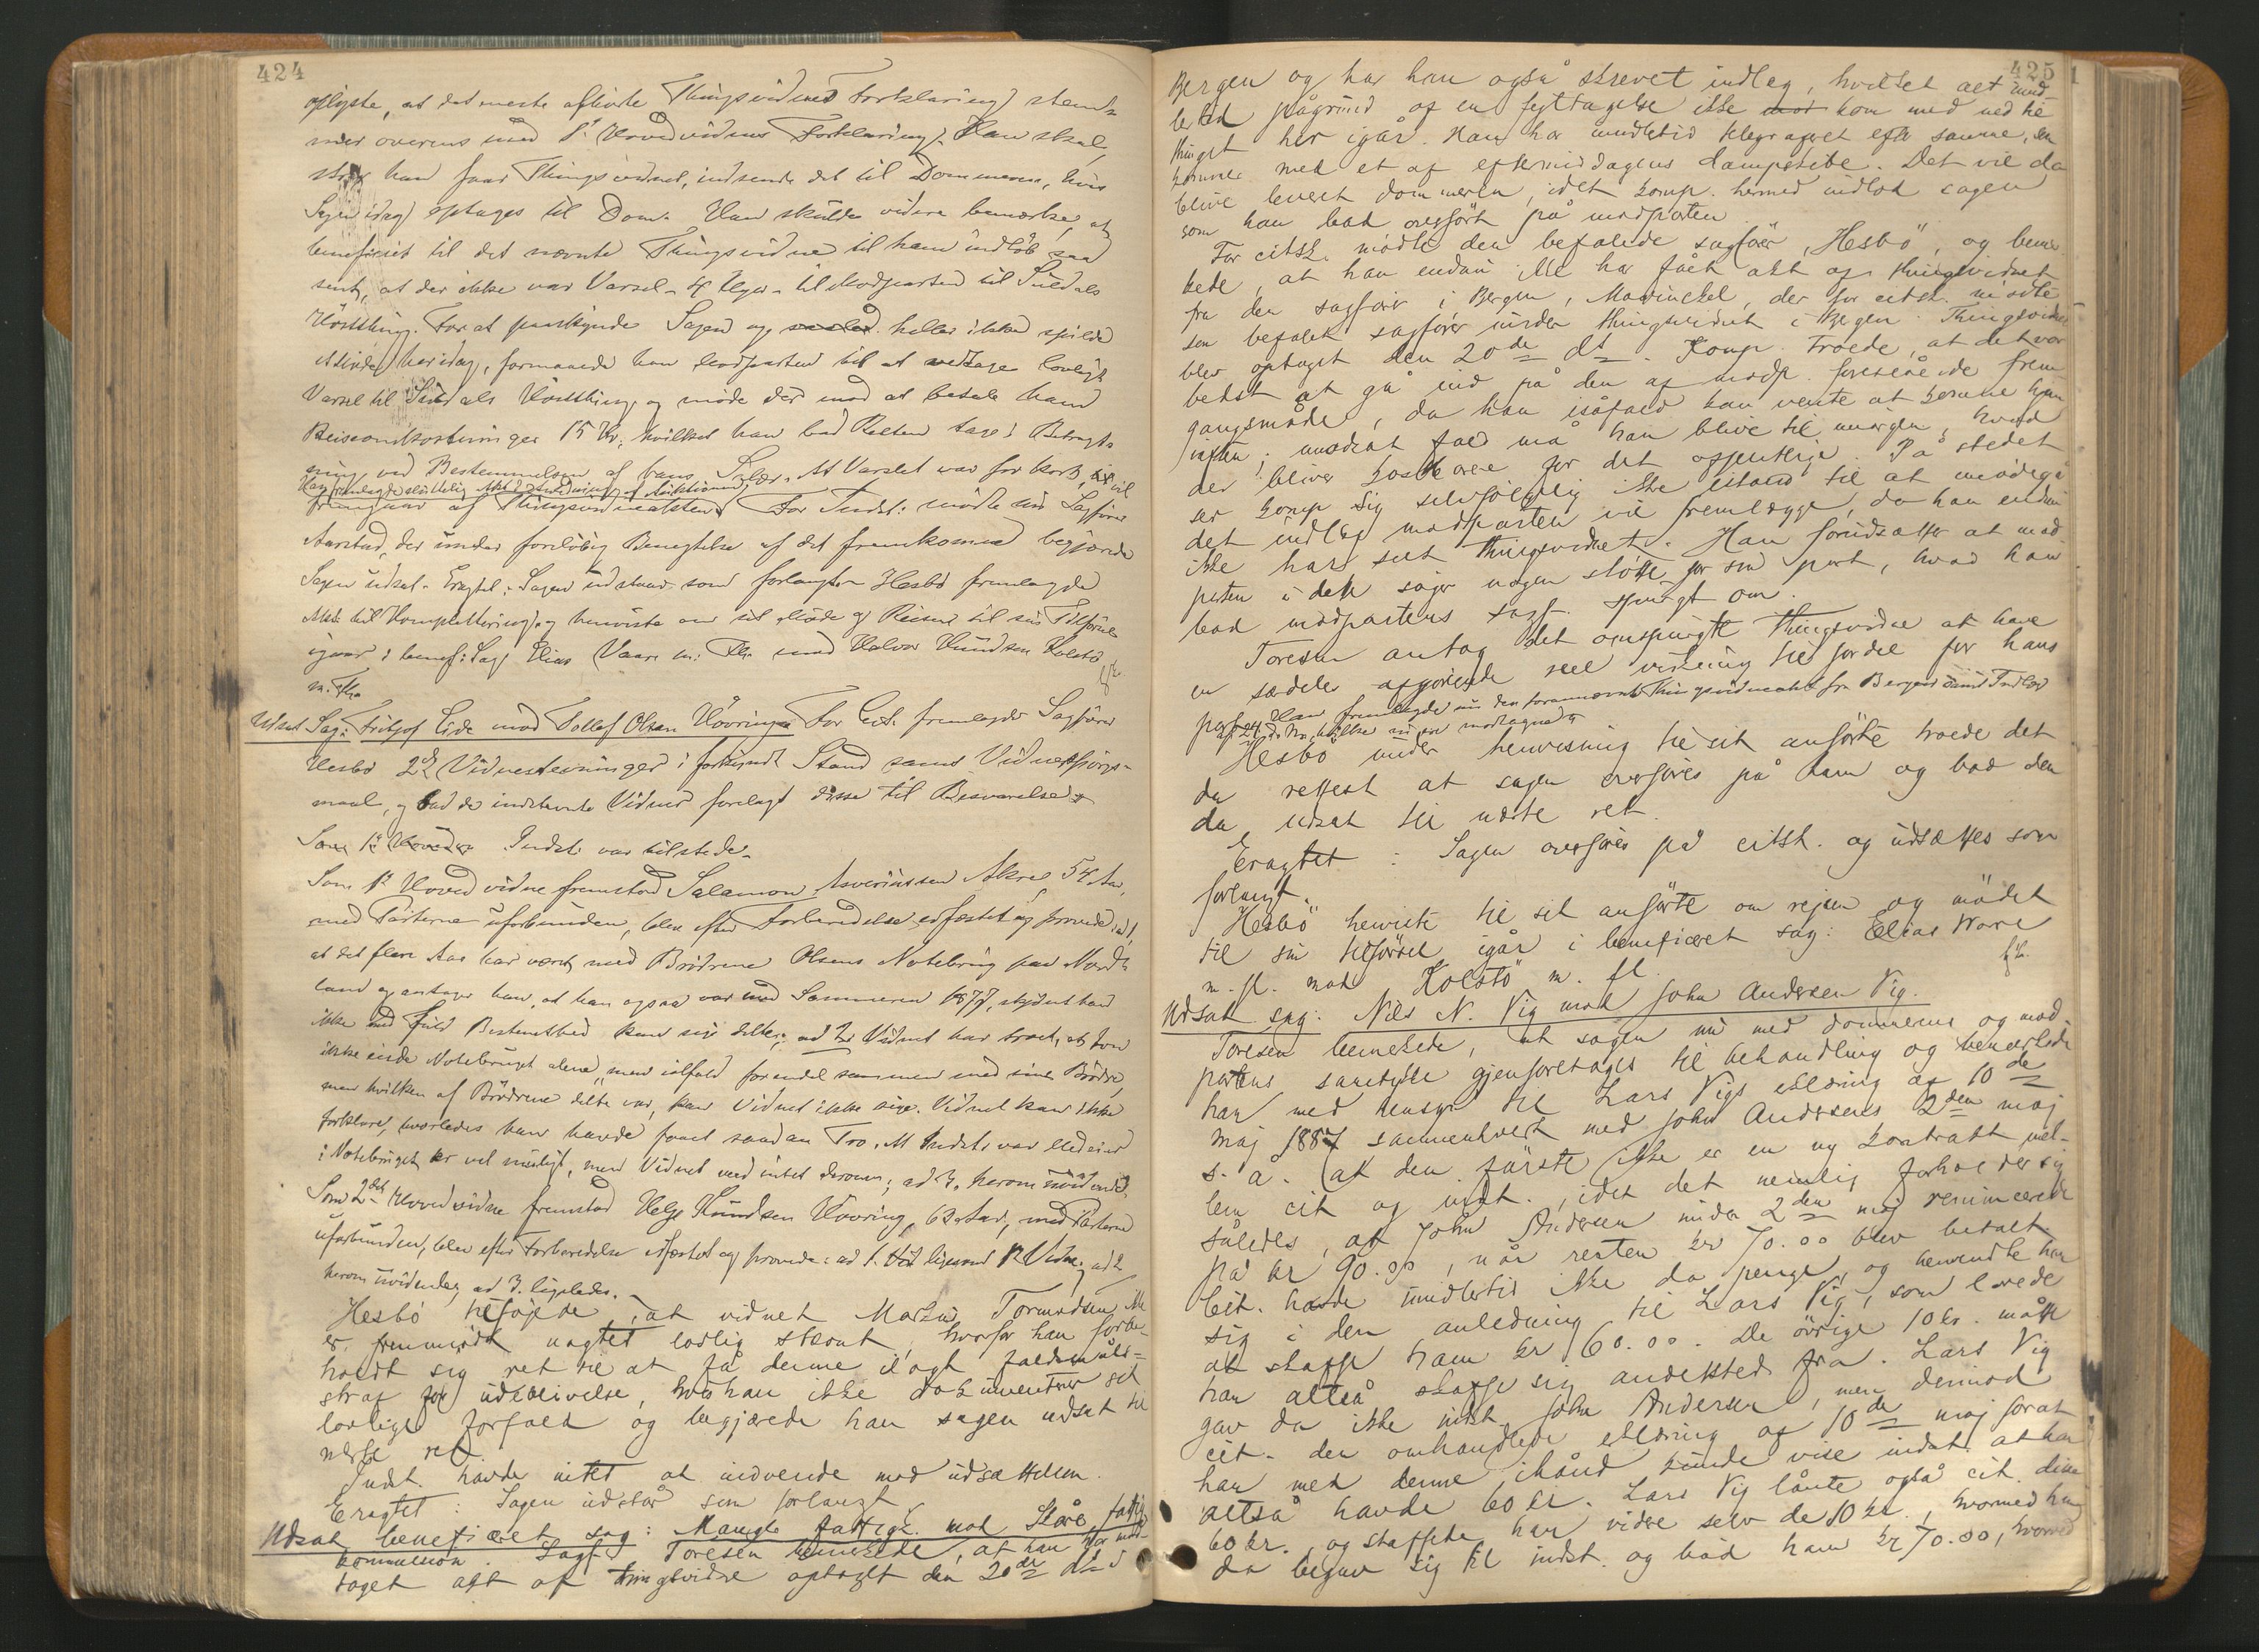 424
oplyste, at det meste afhörte Thingsvidnes Forklaring stem-
mer overens med 1ste Hovedvidnes Forklaring. Han skal,
strax han faar Thingsvidnet, indsende det til Dommeren, hvis
Sagen idag optages til Dom. Han skulde videre bemærke, at
beneficiet til det nævnte Thingsvidne til ham indløb saa
sent, at der ikke var Varsel - 4 Uger - til Modparten til Suldals
Høstthing. For at paaskynde Sagen og heller ikke spilde
her idag, formanede han Modparten til at vedtage lovligt
Varsel til Suldals Høstthing og møde der mod at betale ham
Reiseomkostninger 15 Kr, hvilket han bad Retten tage i Betragt-
ning ved Bestemmelsen af hans Salær. At Varslet var for kort, vil
Han fremlagde sluttelig Akt
fremgaa af Thingsvidneakten. For Indst: mødte nu Sagfører
Aarstad, der under foreløbig Benegtelse af det fremkomne begjærede
Sagen udsat. Eragtet: Sagen udstaar som forlangt. Hesbø fremlagde
Akt til Komplettering og henviste om sit Møde og Reise til sin Tilførsel
igaar i benef: Sag Elias Vaare m: Fl. mod Halvor Knudsen Kolstø
m. Fl.
Udsat Sag: Fritjof Eide mod Tollef Olsen Høvring. For Cit. fremlagde Sagfører
Hesbø 2de Vidnestevninger i forkyndt Stand samt Vidnespørgs-
maal, og bad de indstevnte Vidner forelagt disse til Besvarelse.
Indst. var tilstede.
Som 1ste Hovedvidne fremstod Salamon Asveriussen Akre 54 Aar,
med Parterne uforbunden, blev efter Forberedelse edfæstet og provede: ad 1,
at det flere Aar har været med Brødrene Olsens Notebrug paa Nord-
land og antager han, at han ogsaa var med Sommeren 1877, skjønt han
ikke med fuld Bestemthed kan sige dette; ad 2. Vidnet har troet, at han
ikke eiede Notebruget alene, men ialfald forendel sammen med sine Brødre,
men hvilken af Brødrene dette var, kan Vidnet ikke sige. Vidnet kan ikke
forklare, hvorledes han havde faaet saadan Tro. At Indst. var Medeier
i Notebruget er vel muligt, men Vidnet ved intet derom; ad 3. herom uvidende.
Som 2det Hovedvidne fremstod Helge Knudsen Høvring, 62 Aar, med Parterne
uforbunden, blev efter Forberedelse edfæstet og provede: ad 1. ligesom 1ste Vidne; ad 2
herom uvidende, ad 3. ligeledes.
Hesbö tilföjede, at vidnet Markus Tormodsen
er fremmödt uagtet lovlig stevnt, hvorfor han forbe-
holdt sig ret til at få denne ilagt faldsmåls-
straf for udeblivelse, hvis han ikke dokumenterer sit
lovlige forfald og begjærede han sagen udsat til
næste ret.
Indst. havde intet at indvende mod udsættelsen.
Eragtet: Sagen udstår som forlangt.
Udsat beneficeret sag: Mangls fattigk. mod Skåre fattig
kommission. Sagf. Toresen bemerkede, at han har mod-
taget akt af tingsvidne optaget den 20de ds i
425
Bergen og har han også skrevet indleg, hvilket alt imid
lertid pågrund af en fejltagelse ikke kom med ned til
thinget her igår. Han har imidlertid telegraferet efter samme, der
kommer med et af eftermiddagens dampskibe. Det vil da
blive leveret dommeren, idet komp. hermed indlod sagen
som han bad overfört på modparten
For citsk. mödte den befalede sagförer, "Hesbö", og bemer
kede, at han endnu ikke har fået akt af thingsvidnet
fra den sagförer i Bergen, Mowinckel, der for citsk. mödte
som befalet sagförer under thingsvidnet i Bergen. Thingsvidnet
blev optaget den 20de ds. Komp. troede, at det var
bedst at gå ind på den af modp. foreslåede frem
gangsmåde, da han isåfald kan vente at komme hjem
iaften; modsat fald må han blive til imorgen, hvad
der bliver kostbarere for det offentlige. På stedet
ser komp. sig selvfölgelig ikke istand til at imödegå
det indleg modparten vil fremlegge, da han endnu
ikke har set thingsvidnet. Han forudsætter at mod
parten i dette söger nogen stötte for sin part, hvad han
bad modpartens sagf. spurgt om.
Toresen antog det omspurgte thingsvidne at have
en særdeles afgjörende reel virkning til fordel for hans
part. Han fremlagde nu den forannævnte Thingsvidneakt fra Bergen samt Indlæg
af 24 ds, hvilke nu er modtagne.
Hesbö under henvisning til sit anförte troede det
da rettest at sagen overföres på ham og bad den
da udsat til næste ret.
Eragtet: Sagen overföres på citsk. og udsættes som
forlangt.
"Hesbö" henviste til sit anförte om rejsen og mödet
til sin tilförsel igår i beneficeret sag: Elias Vaare
m. fl. mod "Kolstö" m. fl.
Udsat sag: Nils N. Vig mod John Andersen Vig.
Toresen bemerkede, at sagen nu med dommerens og mod-
partens samtykke gjenforetages til behandling og bemerkede
han med hensyn til Lars Vigs erklæring af 10de
maj 1887 sammenholdt med John Andersens 2den maj
s. å. at den förste ikke er en ny kontrakt mel-
lem cit og indst., idet det nemlig forholder sig
således, at John Andersen under 2den maj renuncerede
på kr 90.00, når resten kr 70.00 blev betalt.
Cit. havde imidlertid ikke da penge, og henvendte han
sig i den anledning til Lars Vig, som lovede
at skaffe ham kr 60.00. De övrige 10 kr. måtte
han altså skaffe sig andetsteds fra. Lars Vig
gav da ikke indst. John Andersen, men derimod
cit. den omhandlede erklæring af 10de maj forat
han med denne ihånd kunde vise indst. at han
altså havde 60 kr. Lars Vig lånte også cit. disse
60 kr. og skaffede han videre selv de 10 kr., hvormed han
da begav sig til indst. og böd ham kr 70.00, hvorved